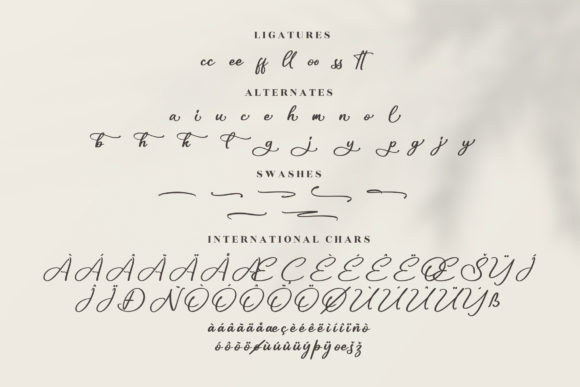 LIGATURES
cc ee ff ll oo ss tt
ALTERNATES
a i u c e h m n o l
b h k t g j y p g j y
SWASHES
INTERNATIONAL CHARS
ÀÁÂÃÄÅÆÇÈÉÊËŒŠŸÌ
ÎÏÐÑÒÓÔÕÖØÙÚÛÜŸÝß
àáâãäåæçèéêëìíîïñò
óôõöøùúûüýþÿœšž